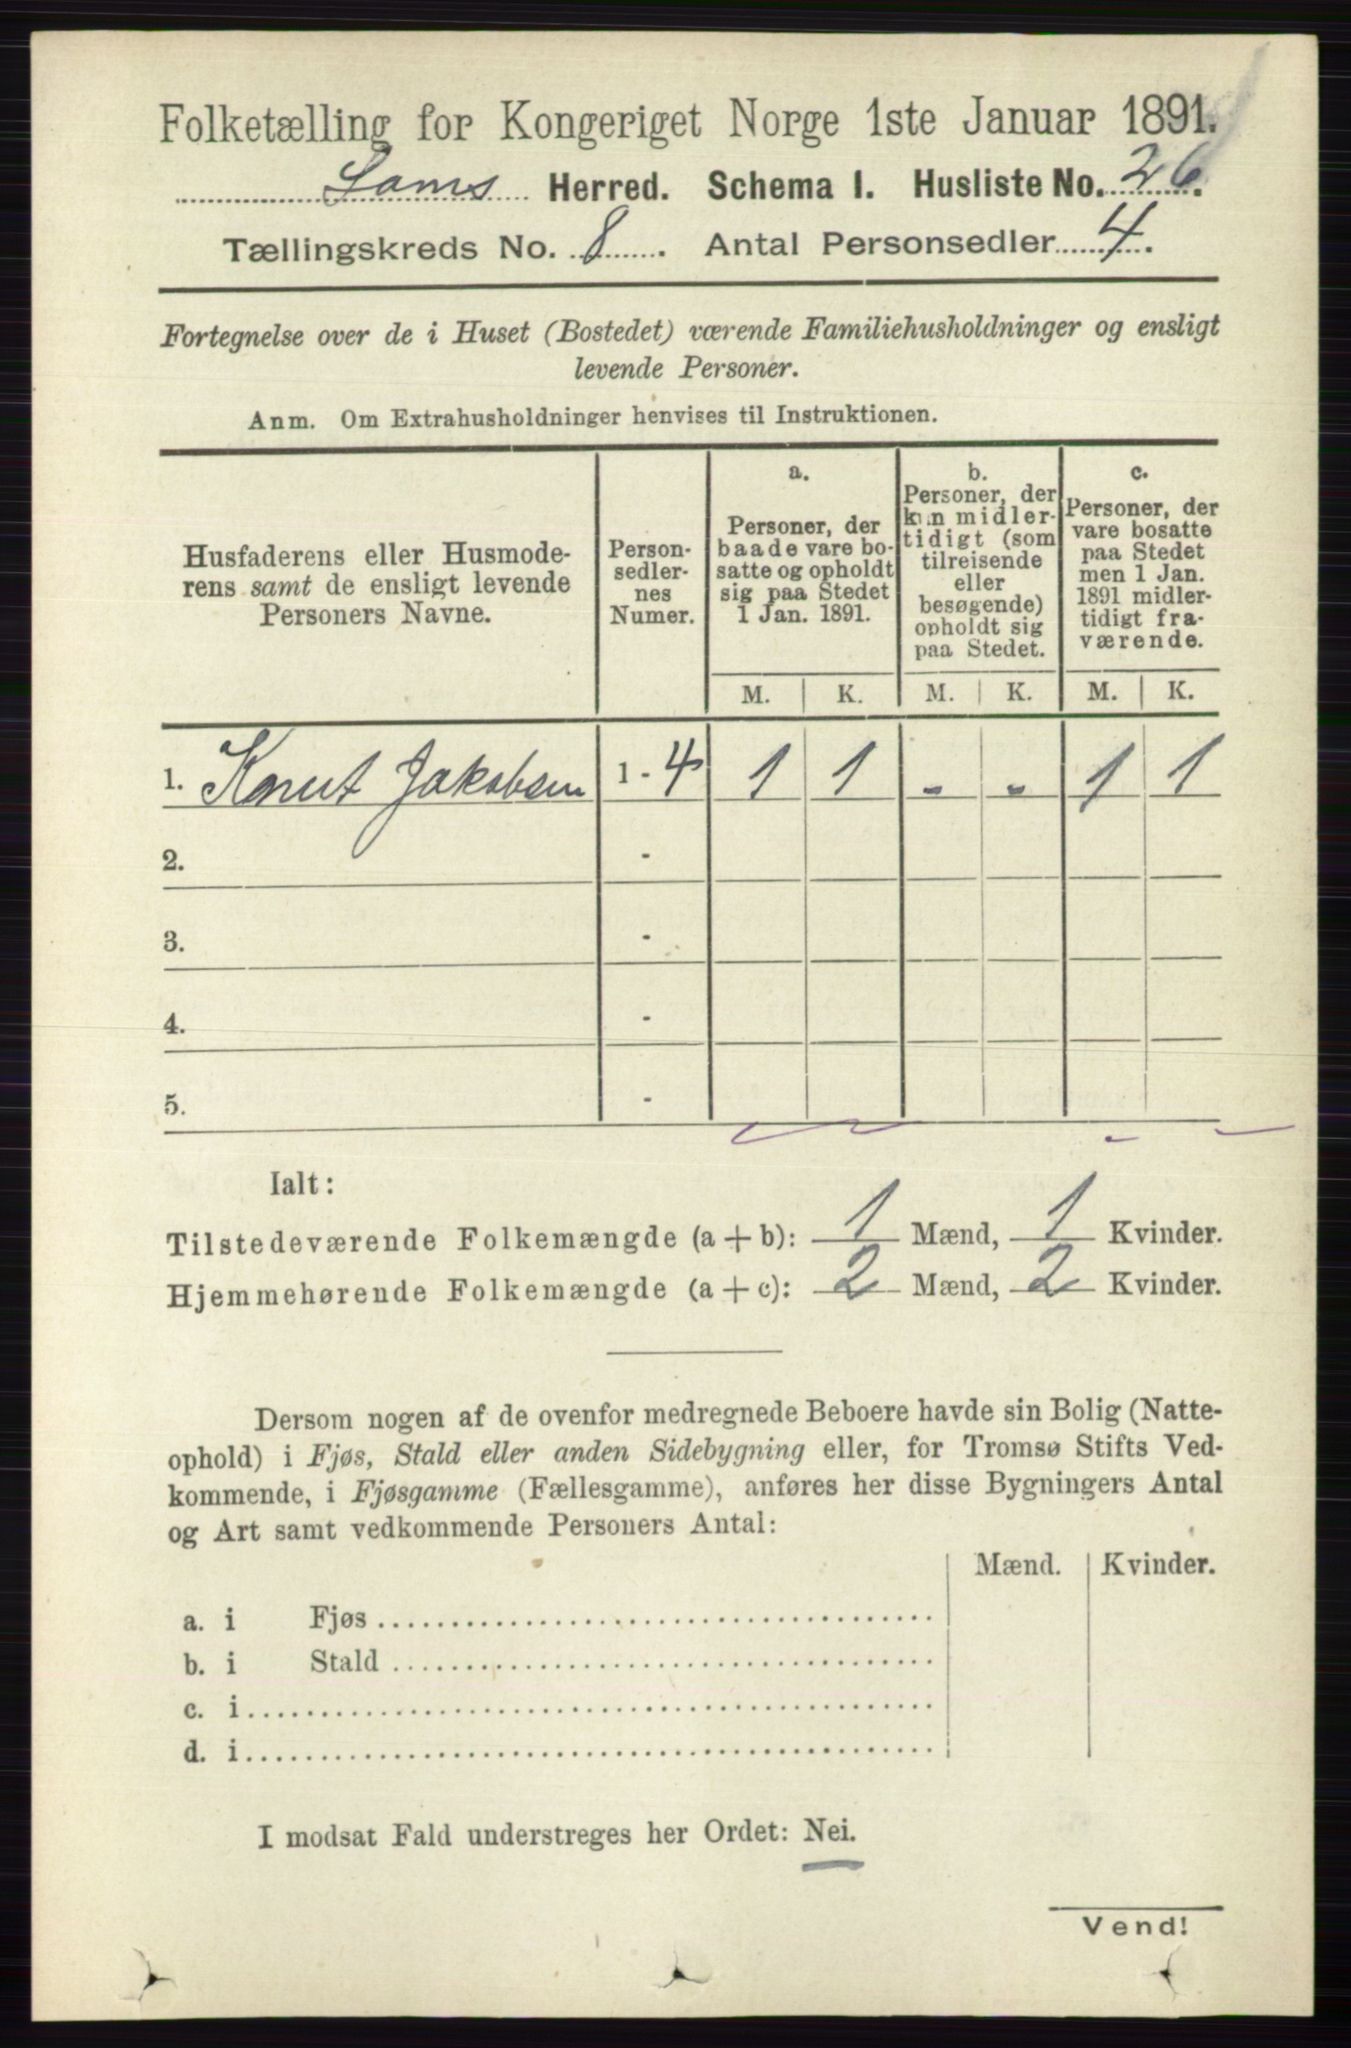 Folketælling for Kongeriget Norge 1ste Januar 1891.
Loms Herred. Schema I. Husliste No. 26.
Tællingskreds No. 8. Antal Personsedler 4.
Fortegnelse over de i Huset (Bostedet) værende Familiehusholdninger og ensligt
levende Personer.
Anm. Om Extrahusholdninger henvises til Instruktionen.
Husfaderens eller Husmode-
rens samt de ensligt levende
Personers Navne.
Person-
sedler-
nes
Numer.
a.
Personer, der
baade vare bo-
satte og opholdt
sig paa Stedet
1 Jan. 1891.
b.
Personer, der
kun midler-
tidigt (som
tilreisende
eller
besøgende)
opholdt sig
paa Stedet.
c.
Personer, der
vare bosatte
paa Stedet
men 1 Jan.
1891 midler-
tidigt fra-
værende.
M. K. M. K. M. K.
1. Knut Jakobsen 1 - 4 1 1 - - 1 1
2. -
3. -
4. -
5. -
Ialt:
Tilstedeværende Folkemængde (a + b): 1 Mænd, 1 Kvinder.
Hjemmehørende Folkemængde (a + c): 2 Mænd, 2 Kvinder.
Dersom nogen af de ovenfor medregnede Beboere havde sin Bolig (Natte-
ophold) i Fjøs, Stald eller anden Sidebygning eller, for Tromsø Stifts Ved-
kommende, i Fjøsgamme (Fællesgamme), anføres her disse Bygningers Antal
og Art samt vedkommende Personers Antal:
Mænd. Kvinder.
a. i Fjøs
b. i Stald
c. i
d. i
I modsat Fald understreges her Ordet: Nei.
Vend!